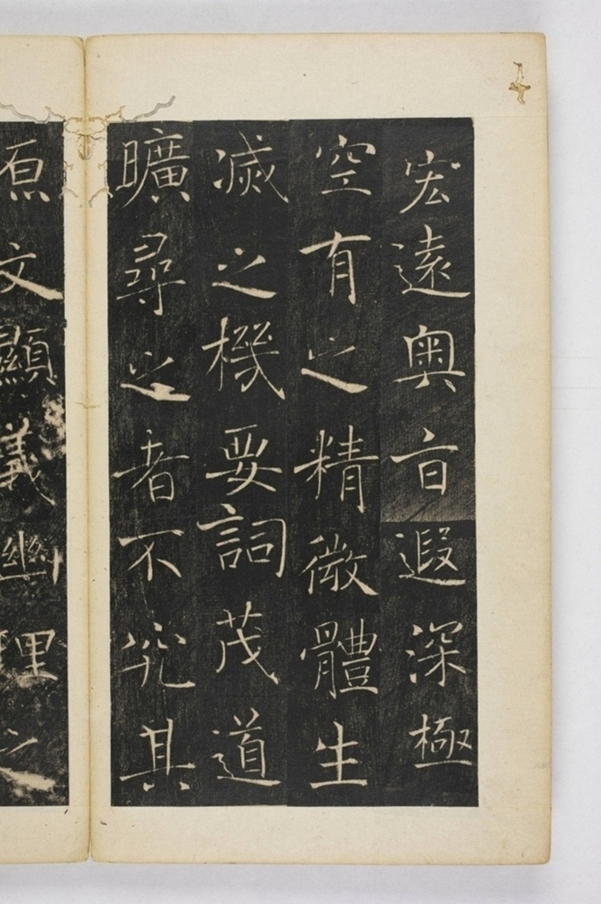 宏遠奧旨遐深極
空有之精微體生
滅之機要詞茂道
曠尋之者不究其
源文顯義幽理之